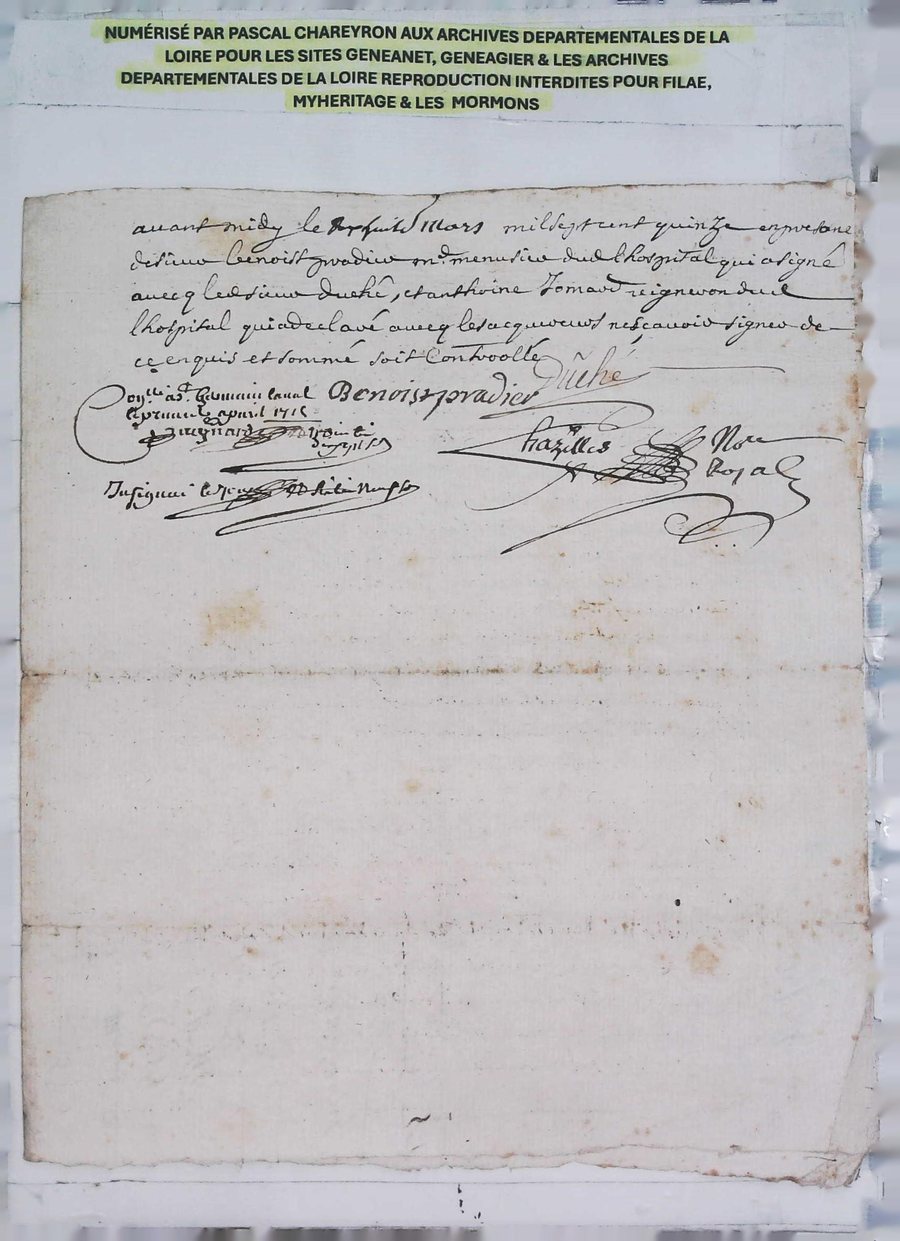 NUMÉRISÉ PAR PASCAL CHAREYRON AUX ARCHIVES DEPARTEMENTALES DE LA
LOIRE POUR LES SITES GENEANET, GENEAGIER & LES ARCHIVES
DEPARTEMENTALES DE LA LOIRE REPRODUCTION INTERDITES POUR FILAE,
MYHERITAGE & LES MORMONS
avant midy le mars mil sept cent quinze en presance
de sieur benoist pradier md. menusier dud. lhospital qui a signé
avecq led sieur duché, et anthoine vigneron dud
lhospital qui a declaré avecq les acquereurs ne sçavoir signer de
ce enquis et sommé soit Controollé
Duché
Benoist pradier
laval
le premier apvril 1715
Chazelles Nore
Royal
Insignué le